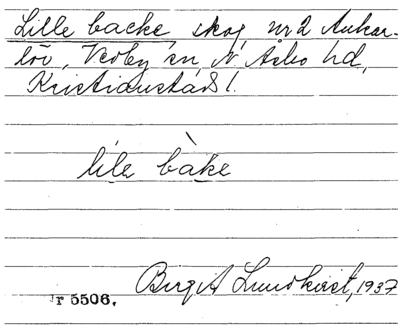 Lille backe skog nr 2 Ankar-
löv, Vedby sn N. Åsbo hd,
Kristianstads l.
lìle bàke
Birgit Lundkvist, 1937
r 5506.